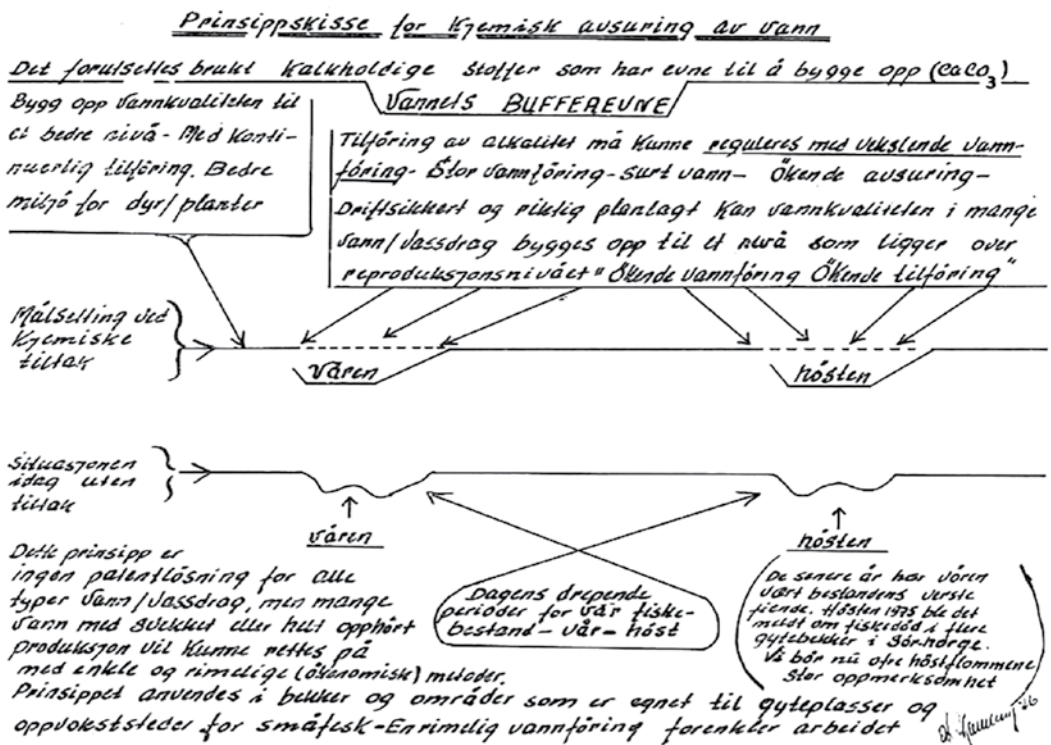 Prinsippskisse for Kjemisk avsuring av vann
Det forutsettes brukt Kalkholdige stoffer som har evne til å bygge opp (CaCO3)
Vannets BUFFEREVNE
Bygg opp vannkvaliteten til
et bedre nivå - Med konti-
nuerlig tilföring. Bedre
miljö for dyr/planter
Tilföring av alkalitet må Kunne reguleres med vekslende vann-
föring - Stor vannföring - surt vann - Ökende avsuring -
Driftsikkert og riktig planlagt Kan vannkvaliteten i mange
vann/vassdrag bygges opp til et nivå som ligger over
reproduksjonsnivået "Ökende vannföring Ökende tilföring"
Målsetting ved
Kjemiske
tiltak
våren
hösten
Situasjonen
idag uten
tiltak
våren
hösten
Dette prinsipp er
ingen patentlösning for alle
typer vann/vassdrag, men mange
vann med svekket eller helt opphört
produksjon vil Kunne rettes på
med enkle og rimelige (ökonomisk) metoder.
Prinsippet anvendes i bekker og områder som er egnet til gyteplasser og
oppvokststeder for småfisk - En rimelig vannföring forenkler arbeidet
Dagens drepende
perioder for vår fiske-
bestand - vår - höst
De senere år har våren
vært bestandens verste
fiende. Hösten 1975 ble det
meldt om fiskedöd i flere
gytebekker i Sör-Norge.
Vi bör nå ofre höstflommene
stor oppmerksomhet